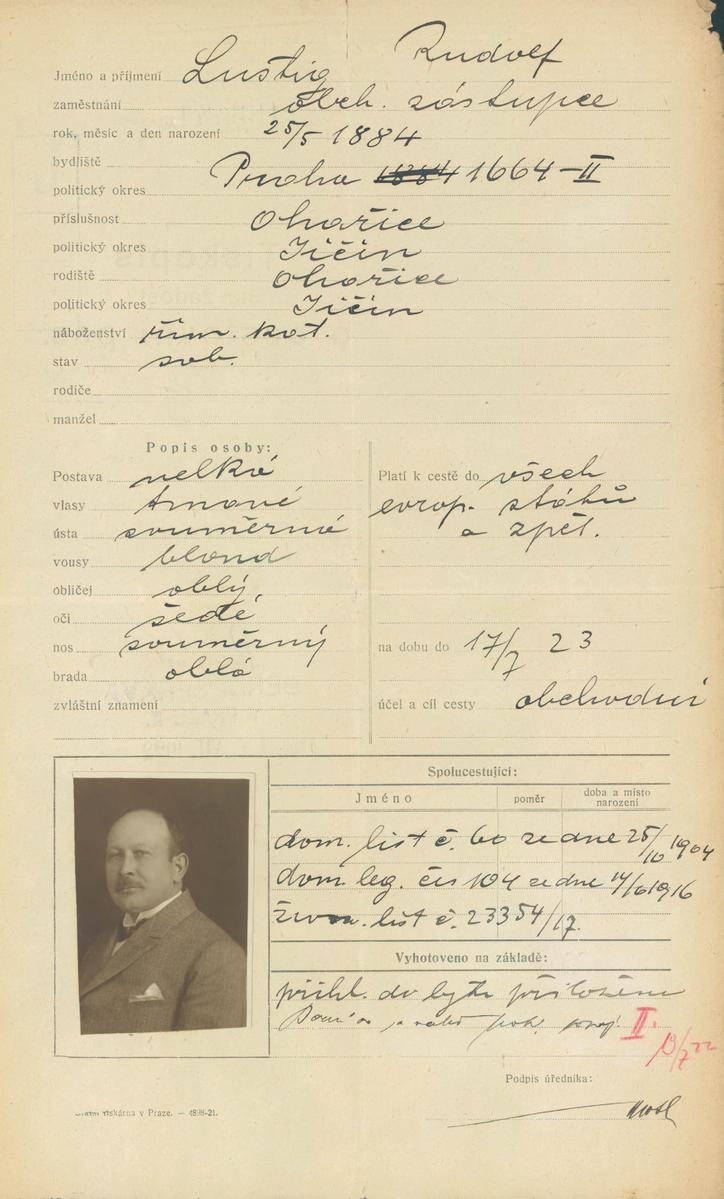 Jméno a příjmení Lustig Rudolf
zaměstnání obch. zástupce
rok, měsíc a den narození 25/5 1884
bydliště
politický okres Praha 1884 1664-II
příslušnost Ohařice
politický okres Jičín
rodiště Ohařice
politický okres Jičín
náboženství řím. kat.
stav svob.
rodiče
manžel
Popis osoby:
Postava velká
vlasy tmavé
ústa souměrná
vousy blond
obličej oblý
oči šedé
nos souměrný
brada oblá
zvláštní znamení
Platí k cestě do všech
evrop. států
a zpět.
na dobu do 17/7 23
účel a cíl cesty obchodní
Spolucestující:
Jméno poměr doba a místo narození
dom. list č. 60 ze dne 25/10 1904
dom. leg. čís 104 ze dne 14/6 1916
živn. list č. 23354/17.
Vyhotoveno na základě:
přihl. do bytu
II.
13/7 22
Podpis úředníka:
tiskárna v Praze. — 4898-21.